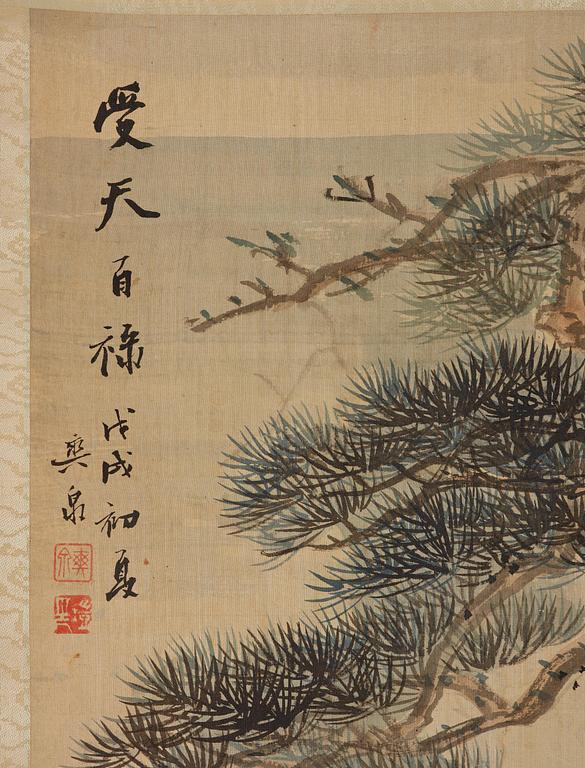 受天百祿
戊戌初夏
爽泉